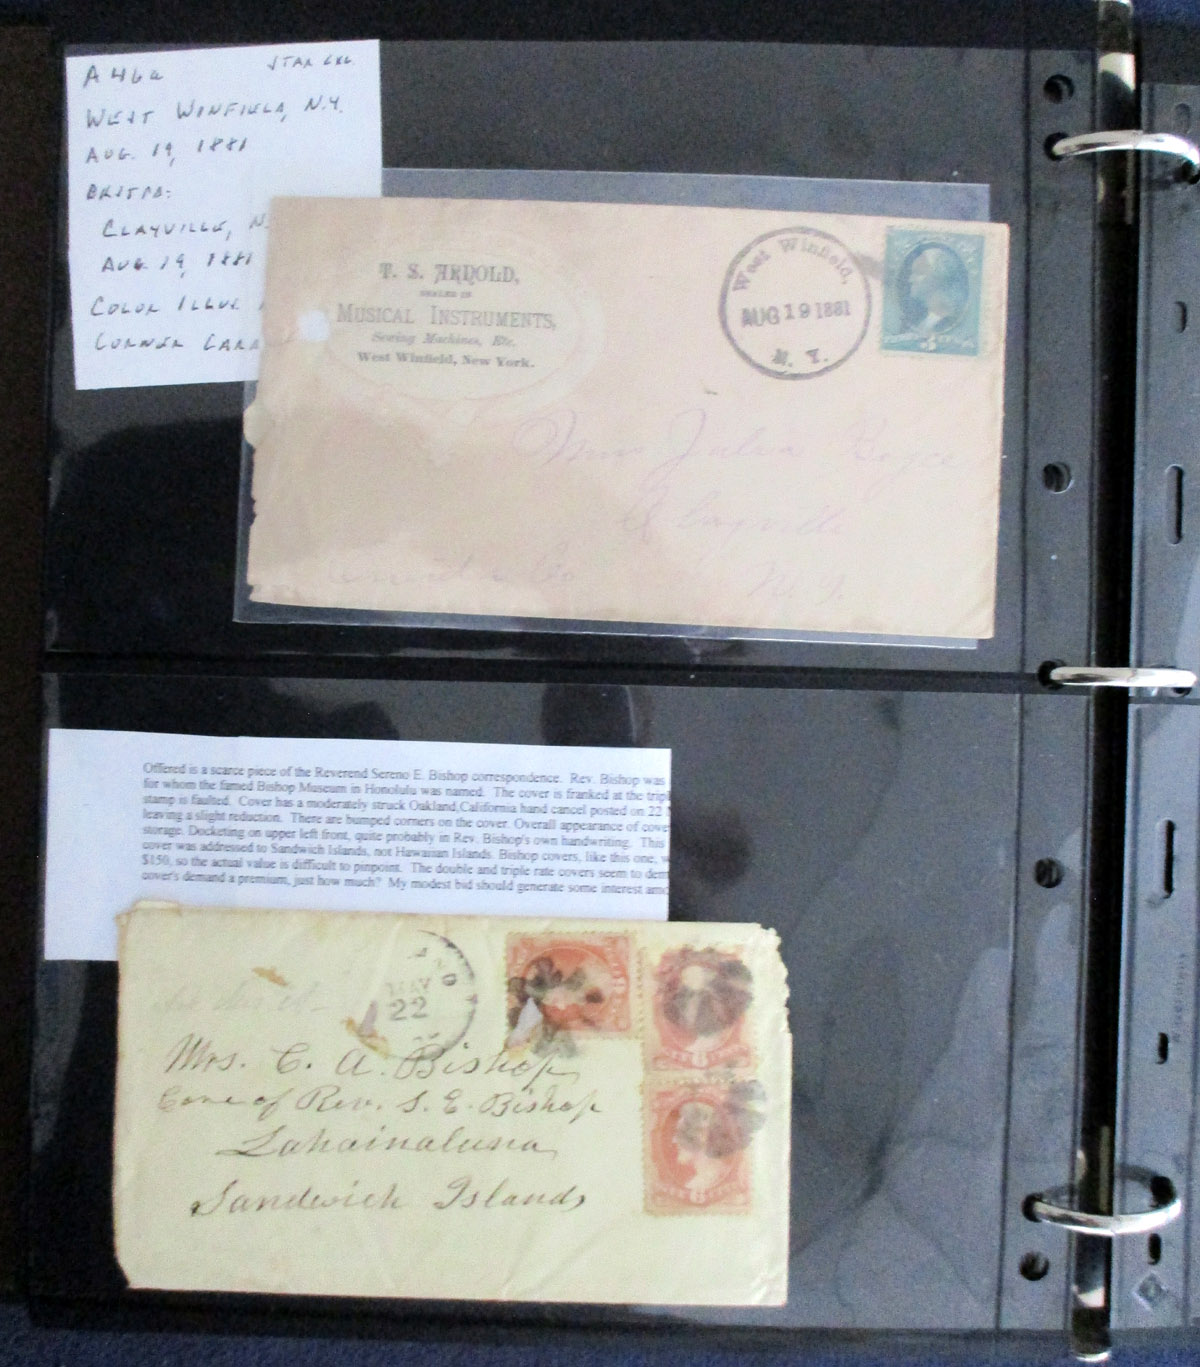 A46a STAR CXL
WEST WINFIELD, N.Y.
AUG. 19, 1881
BKSTPD:
CLAYVILLE, N.
AUG 19, 1881
COLOR ILLUS
CORNER CARD
T. S. ARNOLD,
DEALER IN
MUSICAL INSTRUMENTS,
Sewing Machines, Etc.
West Winfield, New York.
West Winfield,
AUG 19 1881
N. Y.
Julia
Clayville
Co
N. Y.
Offered is a scarce piece of the Reverend Sereno E. Bishop correspondence. Rev. Bishop was
for whom the famed Bishop Museum in Honolulu was named. The cover is franked at the tripl
stamp is faulted. Cover has a moderately struck Oakland,California hand cancel posted on 22
leaving a slight reduction. There are bumped corners on the cover. Overall appearance of cover
storage. Docketing on upper left front, quite probably in Rev. Bishop's own handwriting. This
cover was addressed to Sandwich Islands, not Hawaiian Islands. Bishop covers, like this one, w
$150, so the actual value is difficult to pinpoint. The double and triple rate covers seem to dem
cover's demand a premium, just how much? My modest bid should generate some interest amo
AND
MAY
22
Mrs. C. A. Bishop
Care of Rev. S. E. Bishop
Lahainaluna
Sandwich Islands